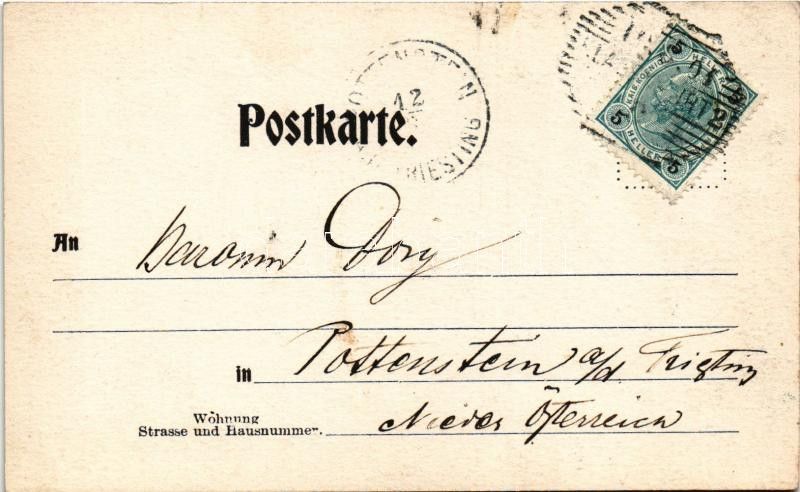 POTTENSTEIN
12
TRIESTING
5 HELLER 5
5 HELLER 5
Postkarte.
An Baronin Dory
in Pottenstein a/d Triesting
Wohnung
Strasse und Hausnummer. Nieder Österreich